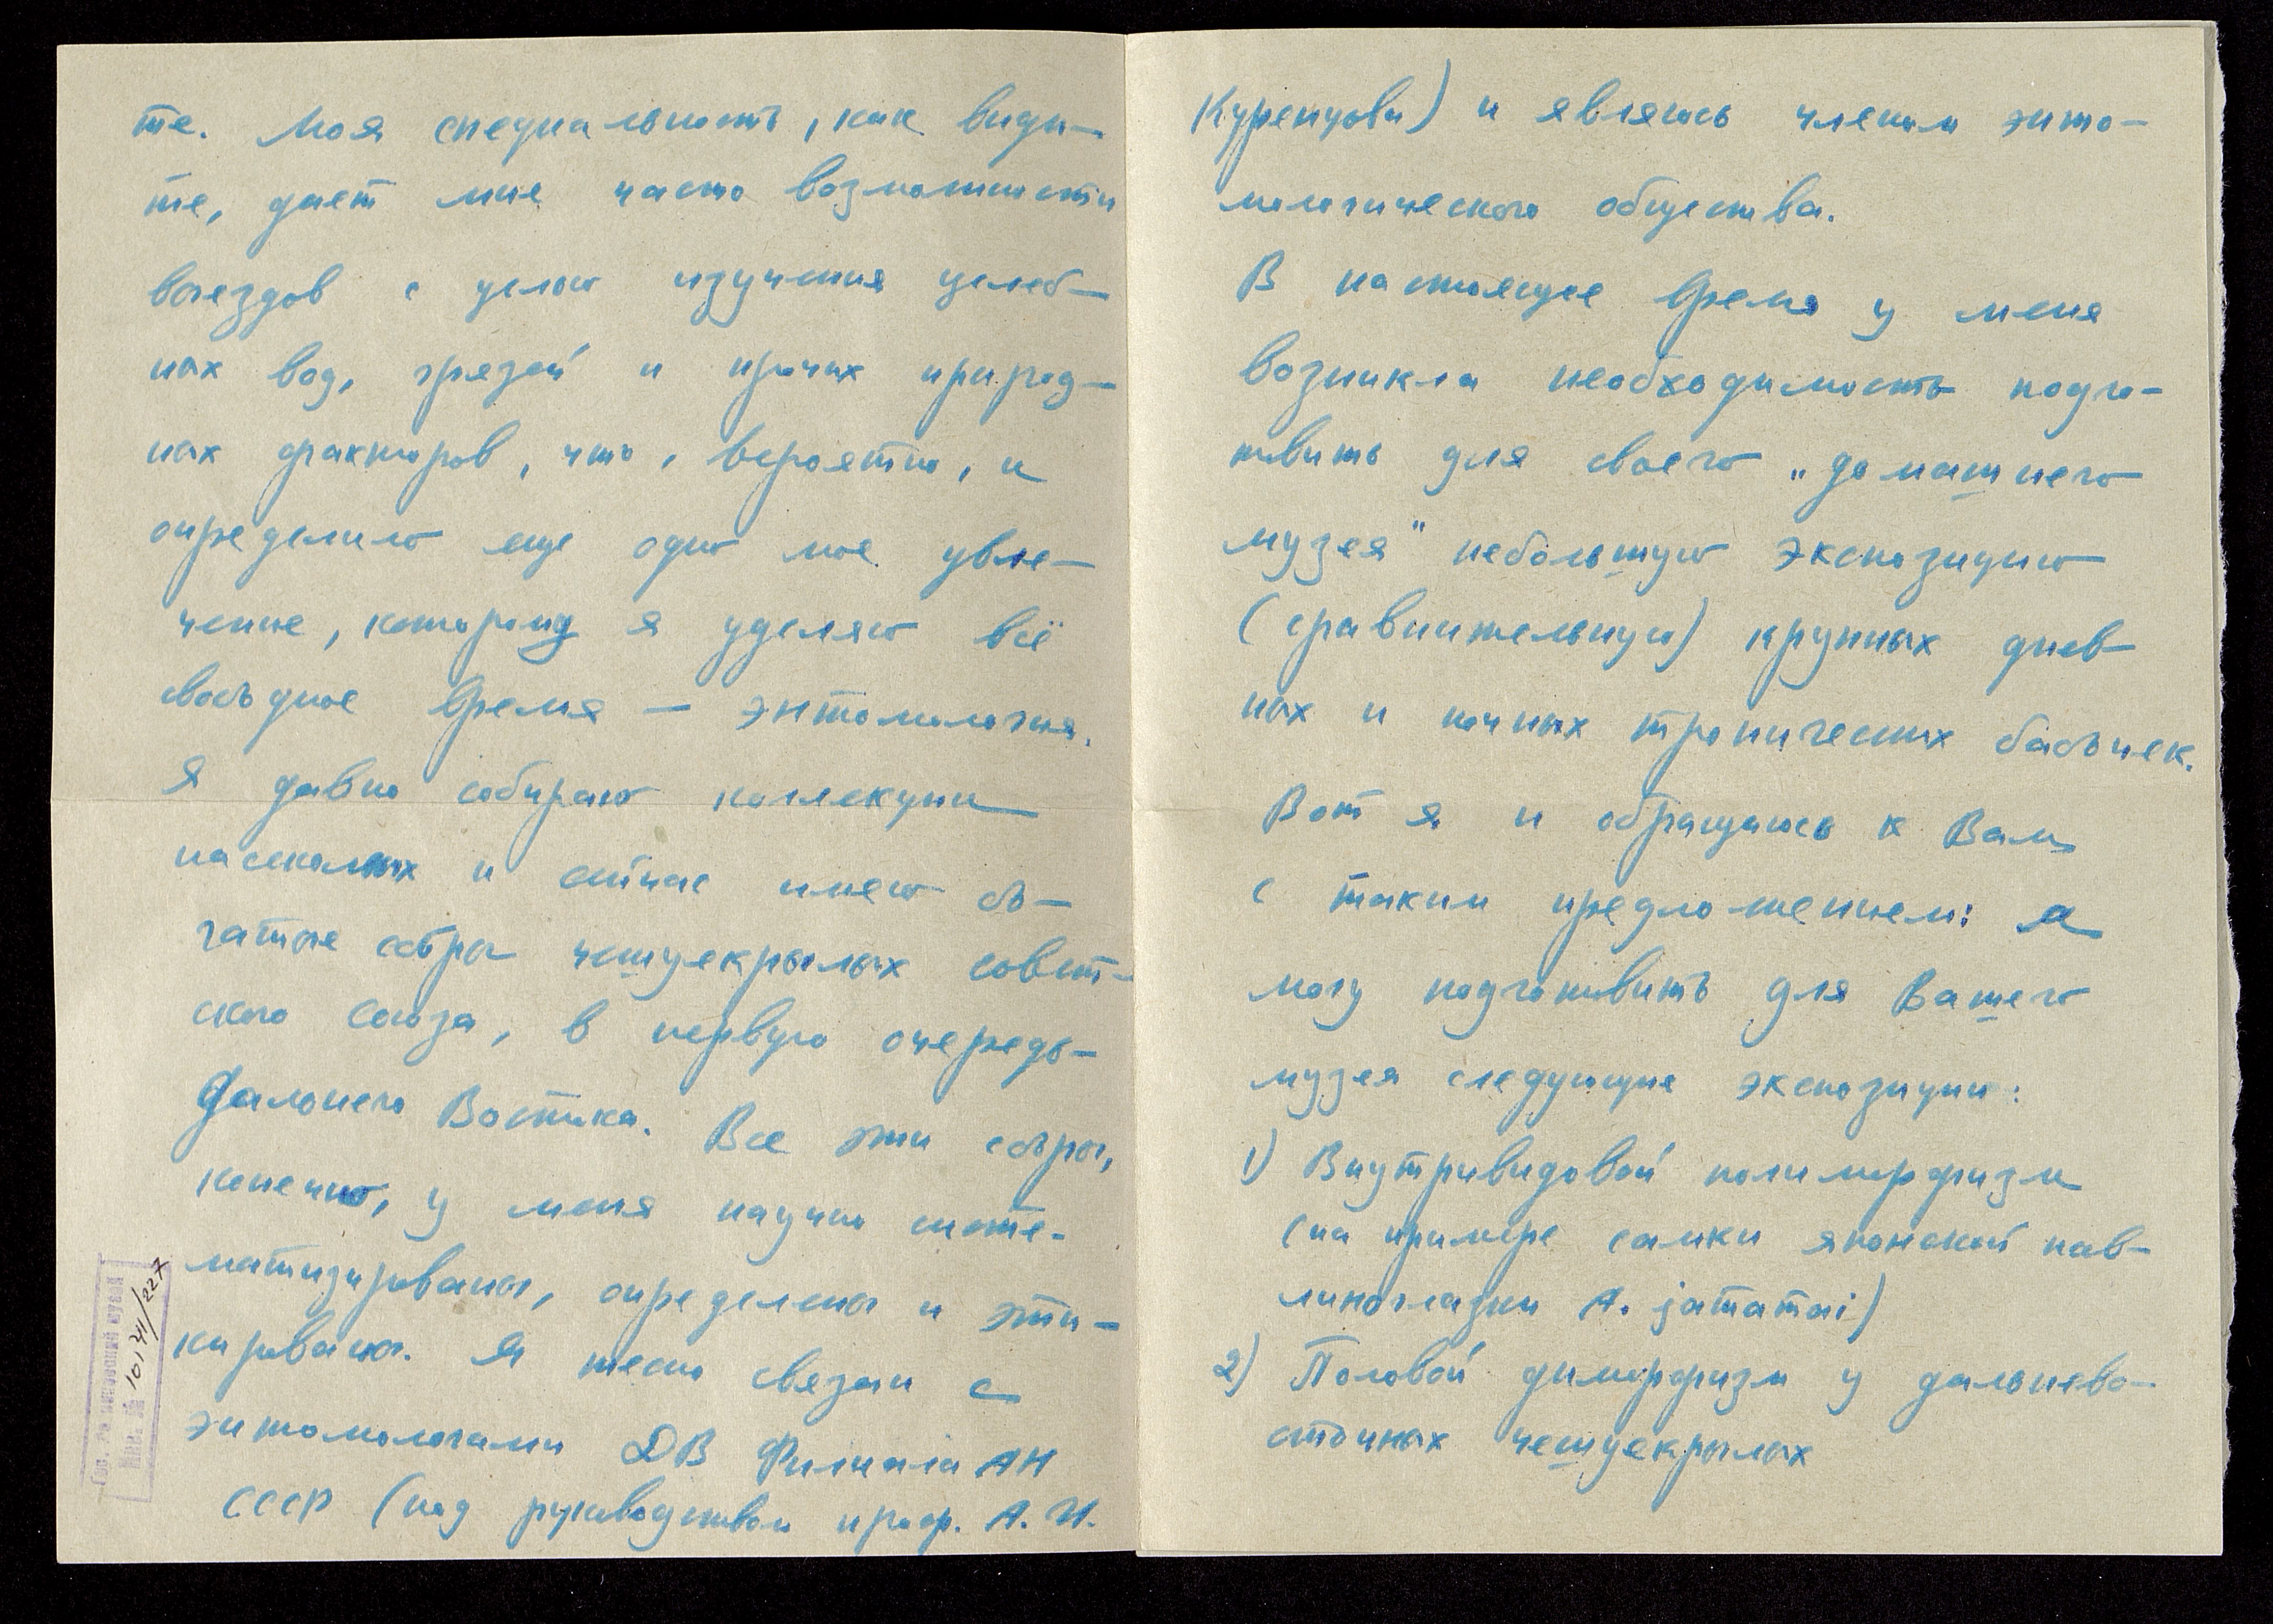 те. Моя специальность, как види-
те, дает мне часто возможности
выездов с целью изучения целеб-
ных вод, грязей и прочих природ-
ных факторов, что, вероятно, и
определило еще одно мое увле-
чение, которому я уделяю всё
свободное время — энтомология.
Я давно собираю коллекции
насекомых и сейчас имею бо-
гатые сборы чешуекрылых Совет-
ского Союза, в первую очередь -
Дальнего Востока. Все эти сборы,
конечно, у меня научно систе-
матизированы, определены и эти-
кированы. Я тесно связан с
энтомологами ДВ Филиала АН
СССР (под руководством проф. А. И.
Куренцова) и являюсь членом энто-
мологического общества.
В настоящее время у меня
возникла необходимость подго-
товить для своего „домашнего
музея" небольшую экспозицию
(сравнительную) крупных днев-
ных и ночных тропических бабочек.
Вот я и обращаюсь к Вам
с таким предложением: я
могу подготовить для Вашего
музея следующие экспозиции:
1) Внутривидовой полиморфизм
(на примере самки японской пав-
линоглазки A. jamamai)
2) Половой диморфизм у дальнево-
сточных чешуекрылых
Инв. № 10141/227